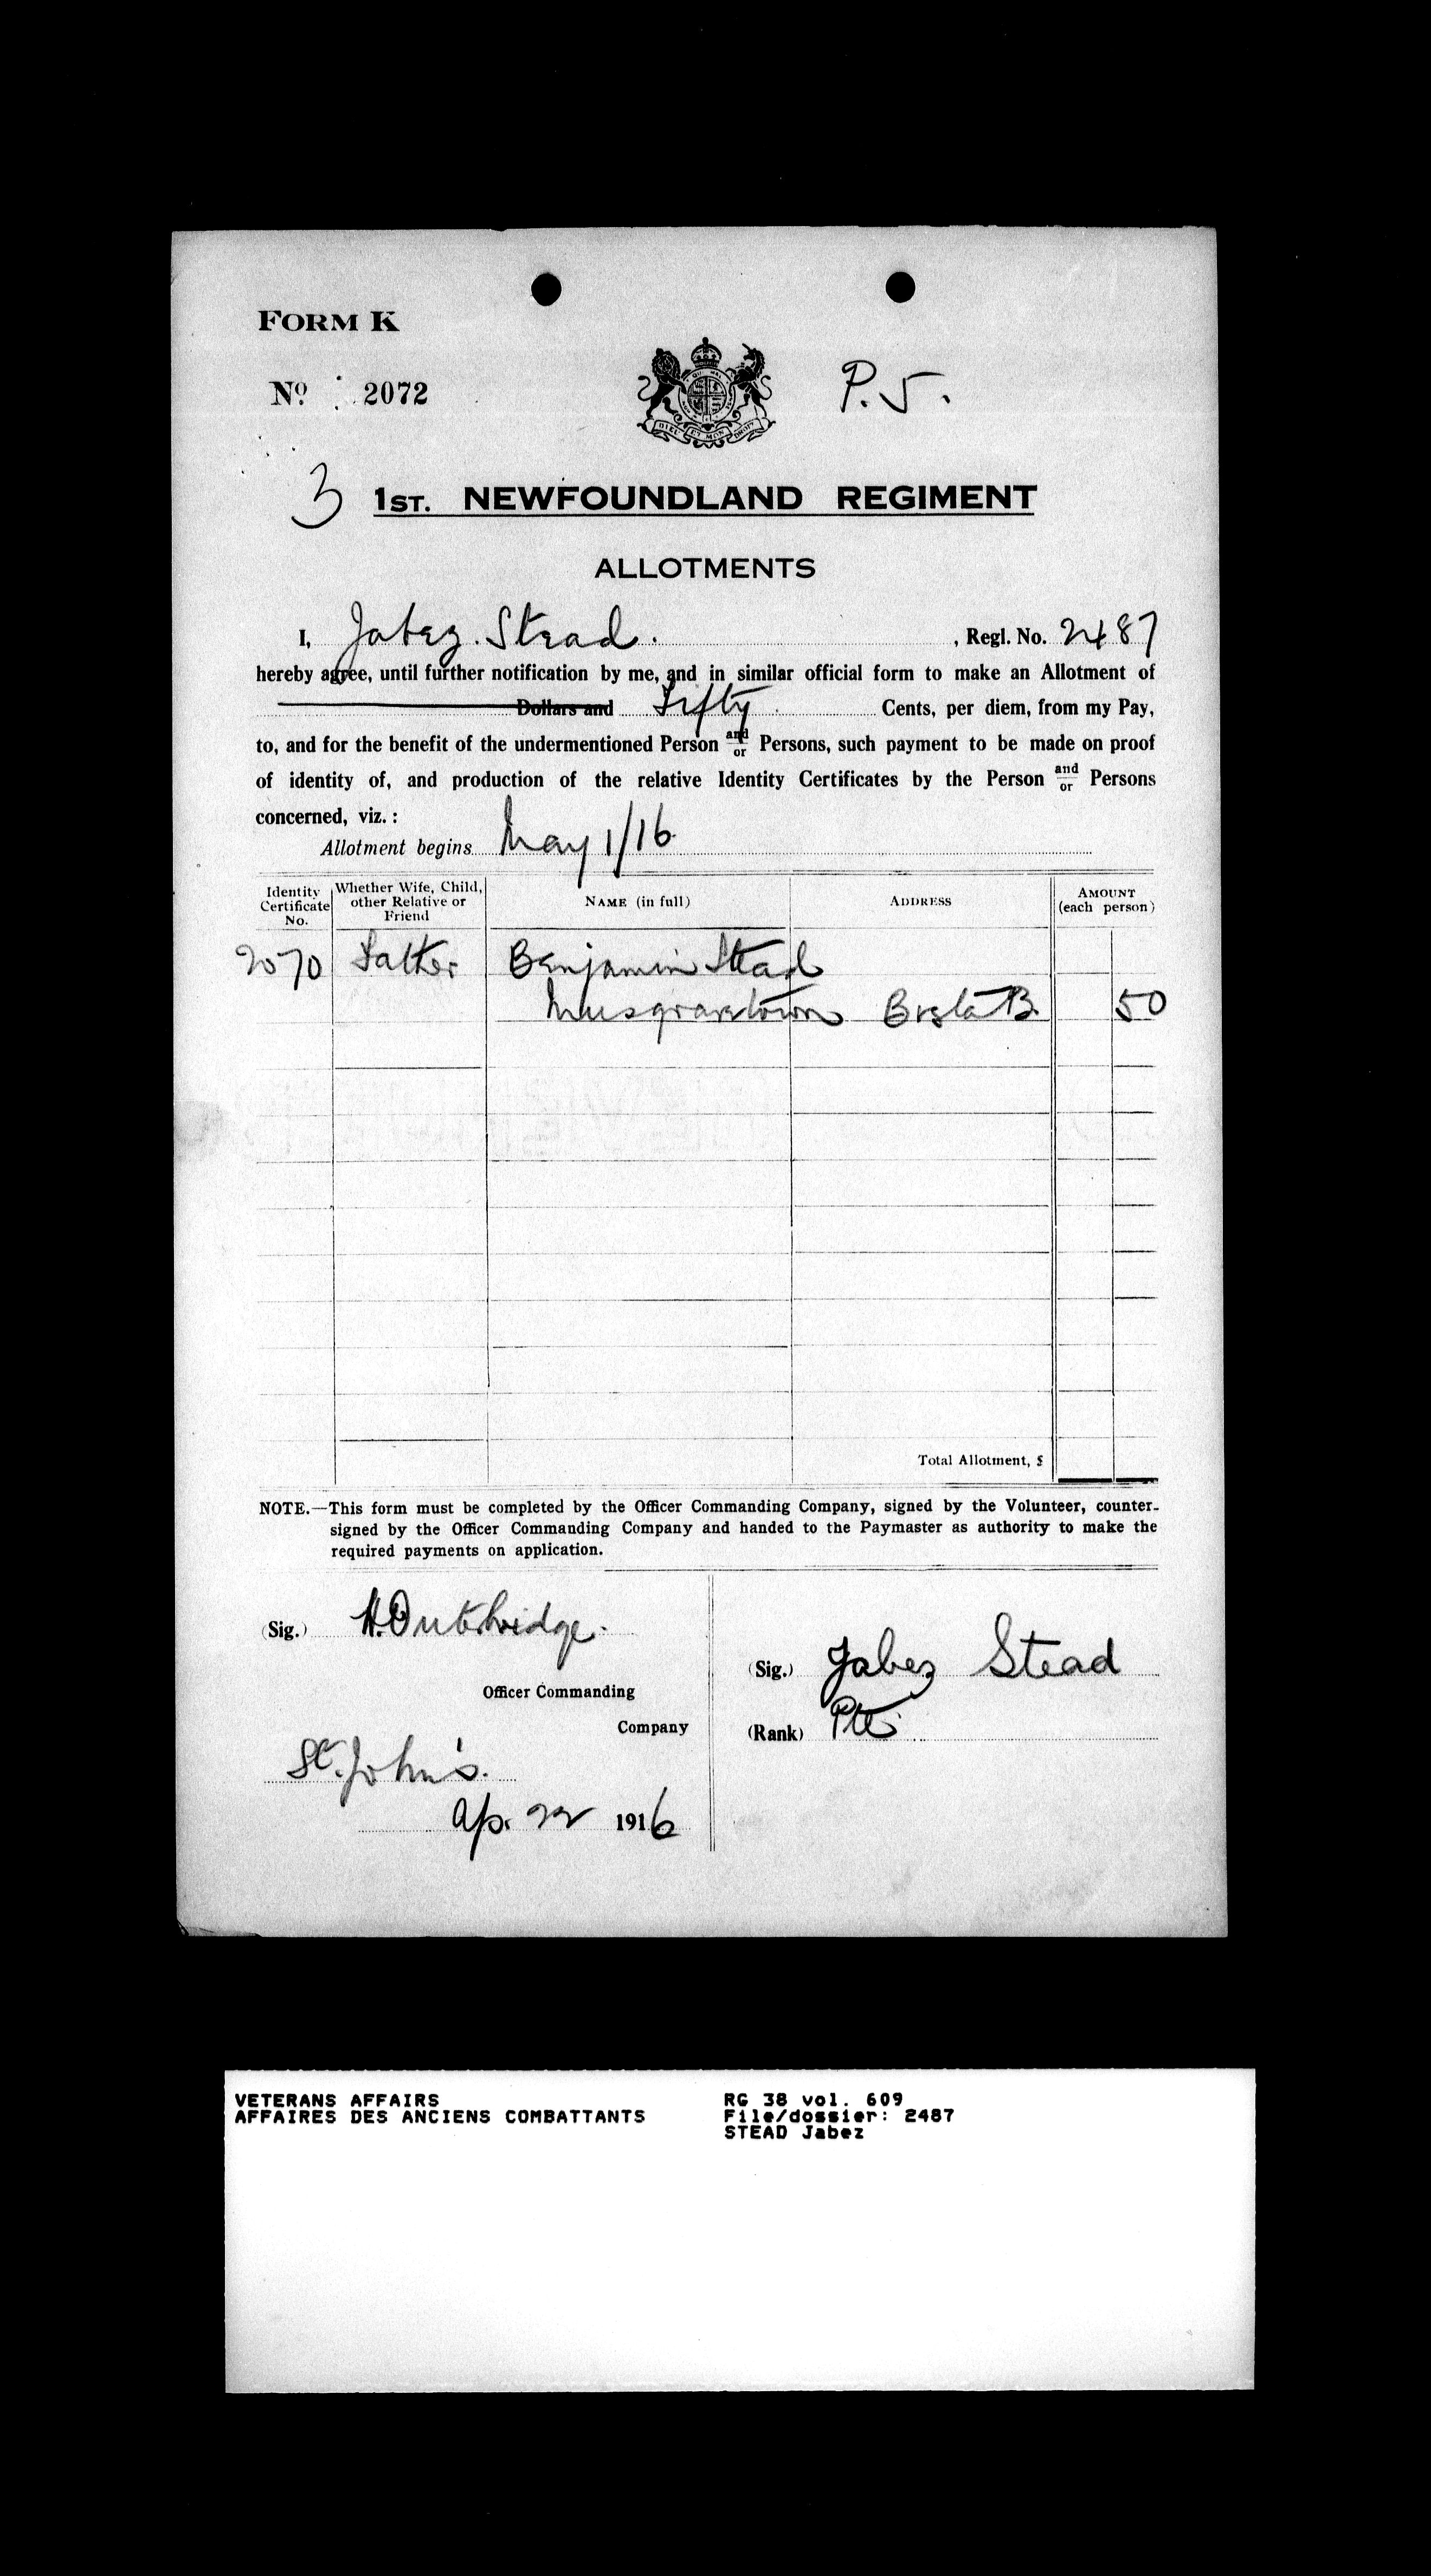 FORM K
No. 2072
P.J.
3 1ST. NEWFOUNDLAND REGIMENT
ALLOTMENTS
I, Jabez Stead. , Regl. No. 2487
hereby agree, until further notification by me, and in similar official form to make an Allotment of
Dollars and Fifty Cents, per diem, from my Pay,
to, and for the benefit of the undermentioned Person and/or Persons, such payment to be made on proof
of identity of, and production of the relative Identity Certificates by the Person and/or Persons
concerned, viz. :
Allotment begins May 1/16
Identity Certificate No. Whether Wife, Child, other Relative or Friend NAME (in full) ADDRESS AMOUNT (each person)
2070 Father Benjamin Stead
Musgravetown 50
Total Allotment, $
NOTE.—This form must be completed by the Officer Commanding Company, signed by the Volunteer, counter-
signed by the Officer Commanding Company and handed to the Paymaster as authority to make the
required payments on application.
(Sig.) H. Outerbridge.
Officer Commanding
Company
St. John's.
Ap. 22 1916
(Sig.) Jabez Stead
(Rank) Pte
VETERANS AFFAIRS
AFFAIRES DES ANCIENS COMBATTANTS
RG 38 vol. 609
File/dossier: 2487
STEAD Jabez